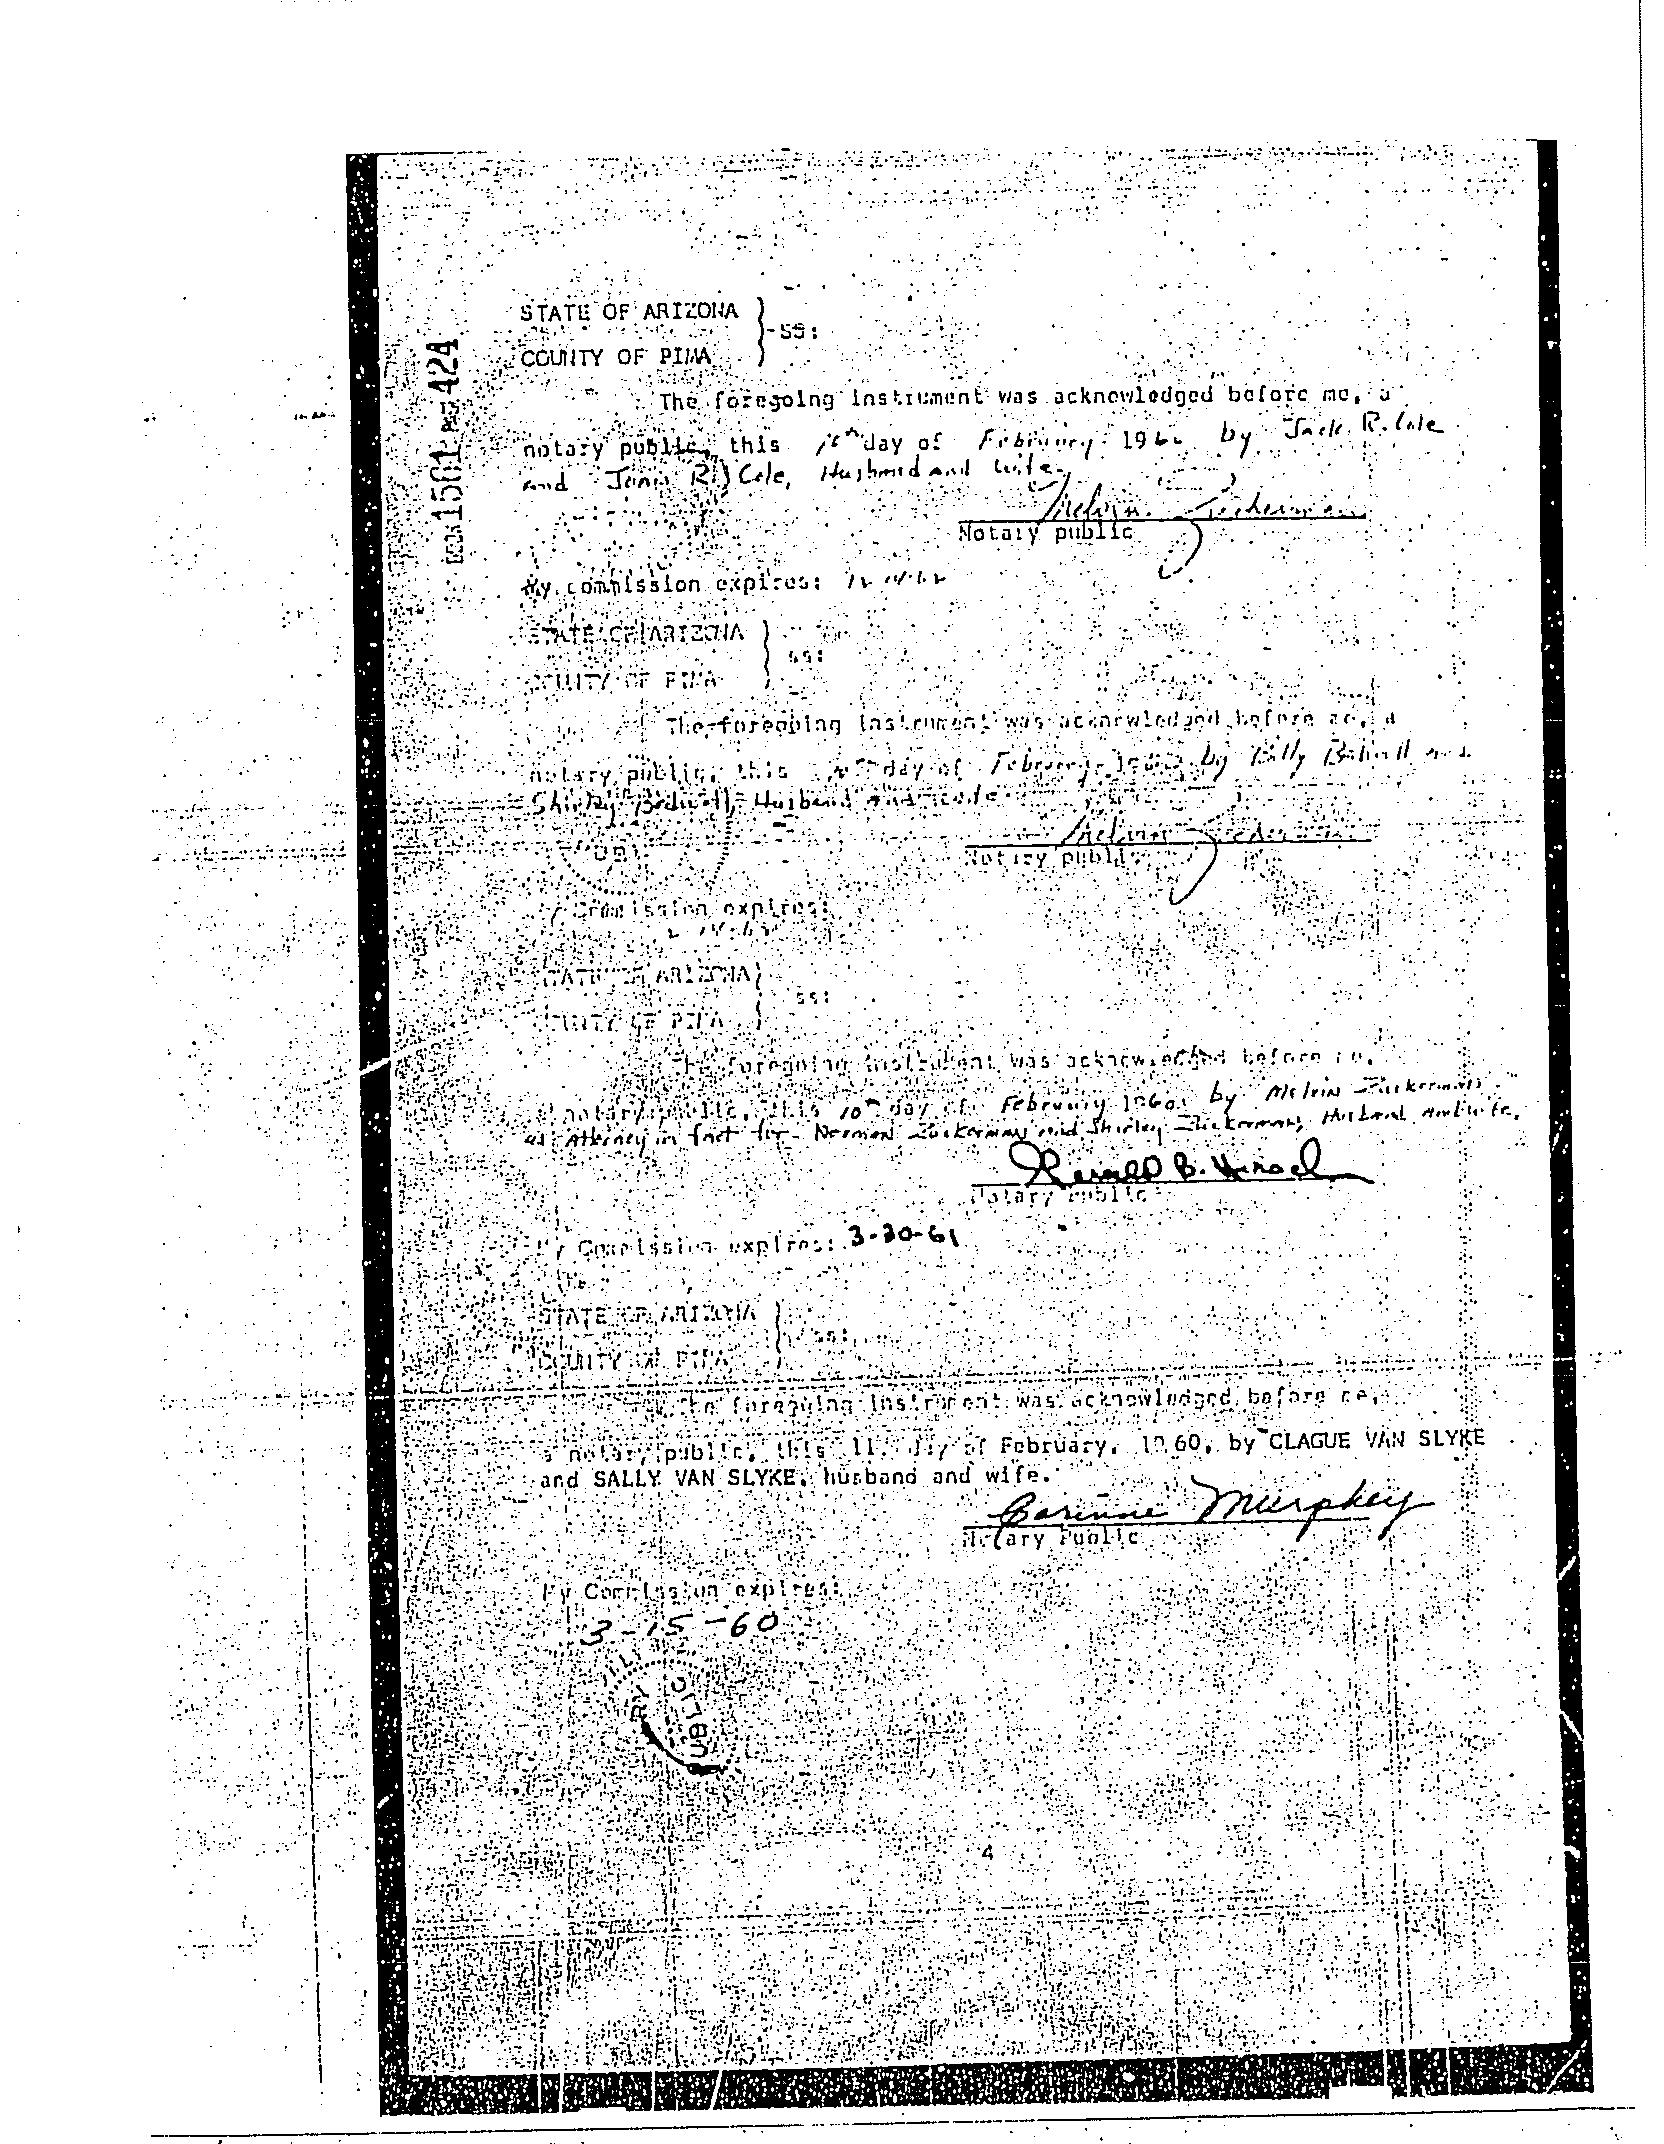 STATE OF ARIZONA
SS:
COUNTY OF PIMA
BOOK 1501 PAGE 424
The foregoing instrument was acknowledged before me, a
notary public, this 10th day of February 1960 by Jack R. Cole
and R. Cole, Husband and wife.
Melvin Zuckerman
Notary public
My commission expires:
STATE OF ARIZONA
SS:
COUNTY OF PIMA
The foregoing instrument was acknowledged before me, a
notary public, this 10th day of February 1960 by Billy Bidwell and
Shirley Bidwell, Husband and wife
Melvin Zuckerman
Notary public
My Commission expires:
STATE OF ARIZONA
SS:
COUNTY OF PIMA
The foregoing instrument was acknowledged before me,
a notary public, this 10th day of February 1960 by Melvin Zuckerman
as Attorney in fact for Norman Zuckerman and Shirley Zuckerman, Husband and wife.
B. Hirsch
Notary Public
My Commission expires: 3-30-61
STATE OF ARIZONA
SS:
COUNTY OF PIMA
The foregoing instrument was acknowledged before me,
a notary public, this 11. day of February, 1960, by CLAGUE VAN SLYKE
and SALLY VAN SLYKE, husband and wife.
Corinne Murphey
Notary Public
My Commission expires:
3-15-60
4